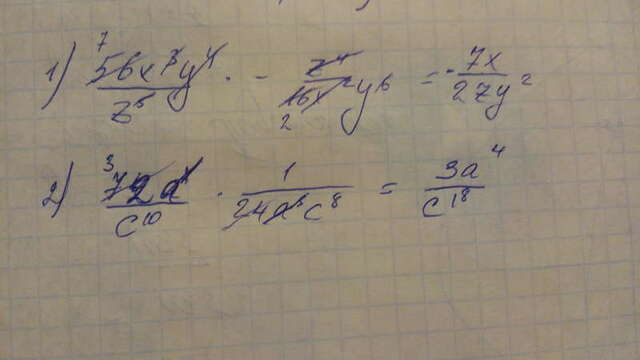 1) 7 56x³y⁴/z⁵ · - z⁴/16x²y⁶ 2 = -7x/2zy²
2) 3 72a/c¹⁰ · 1/24a c⁸ = 3a⁴/c¹⁸